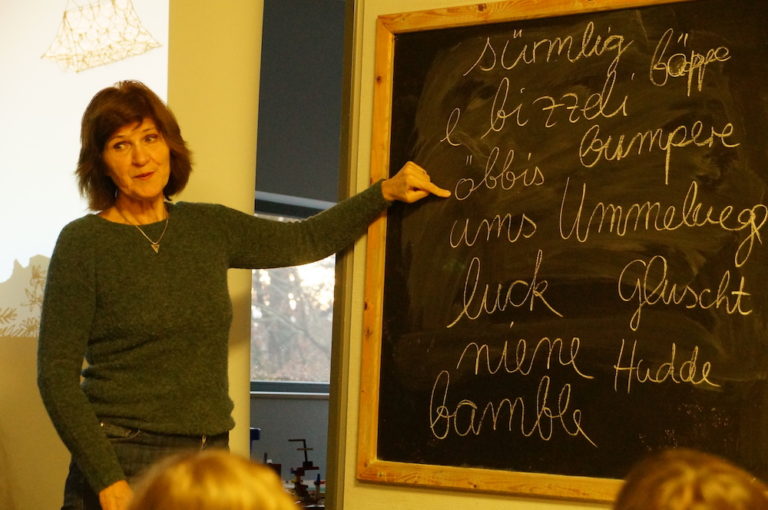 sürmlig bäppe
e bizzeli
öbbis bumpere
ums Ummeluegt
luck Gluscht
niene Hudde
bamble